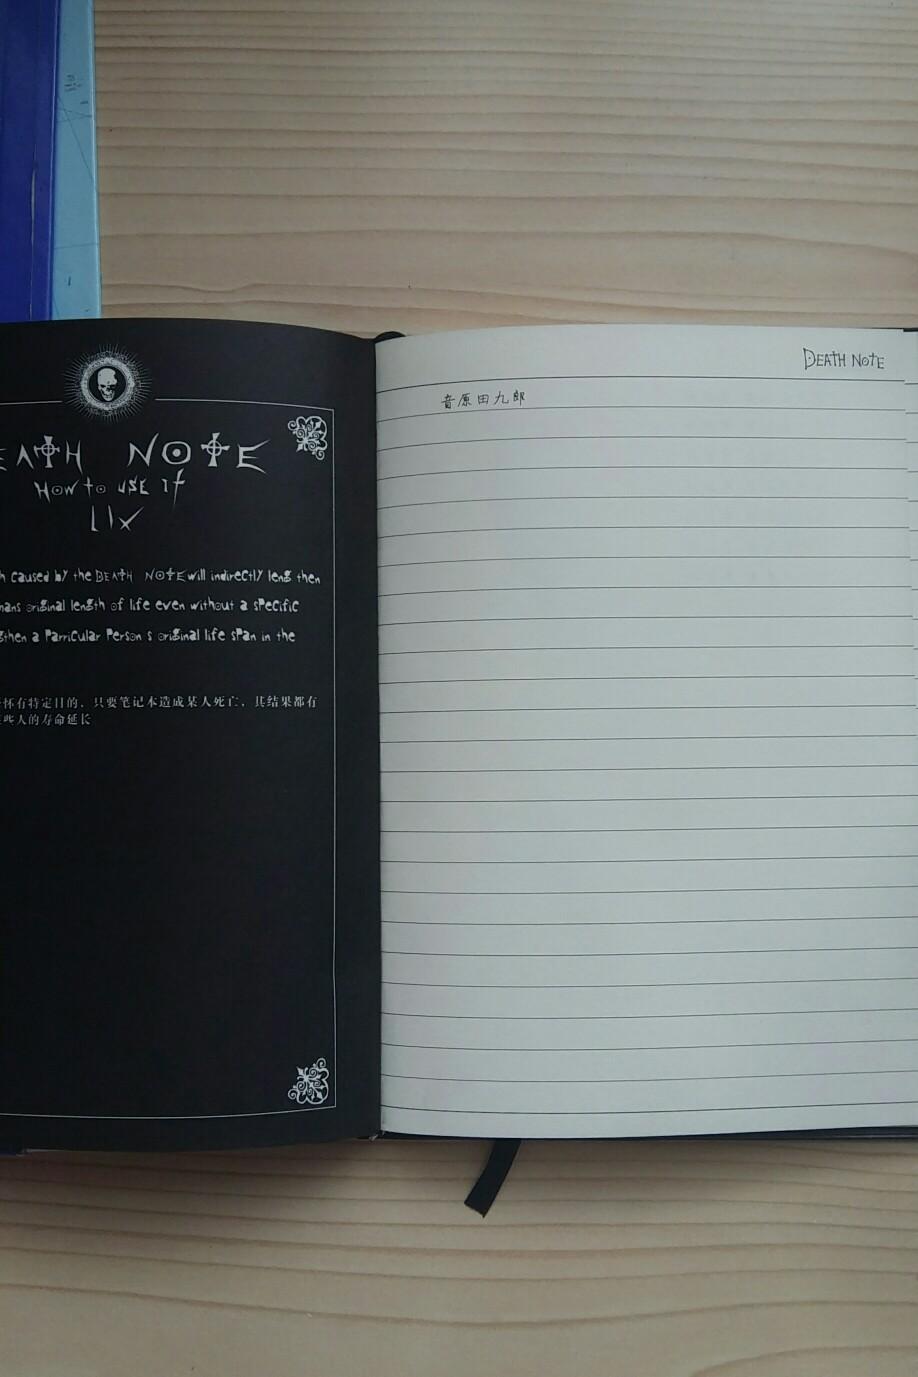 EATH NOTE
How to use it
LIX
h caused by the DEATH NOTE will indirectly leng then
mans original length of life even without a specific
gthen a Parricular Person s original life span in the
怀有特定目的，只要笔记本造成某人死亡，其结果都有
些人的寿命延长
DEATH NOTE
音原田九郎